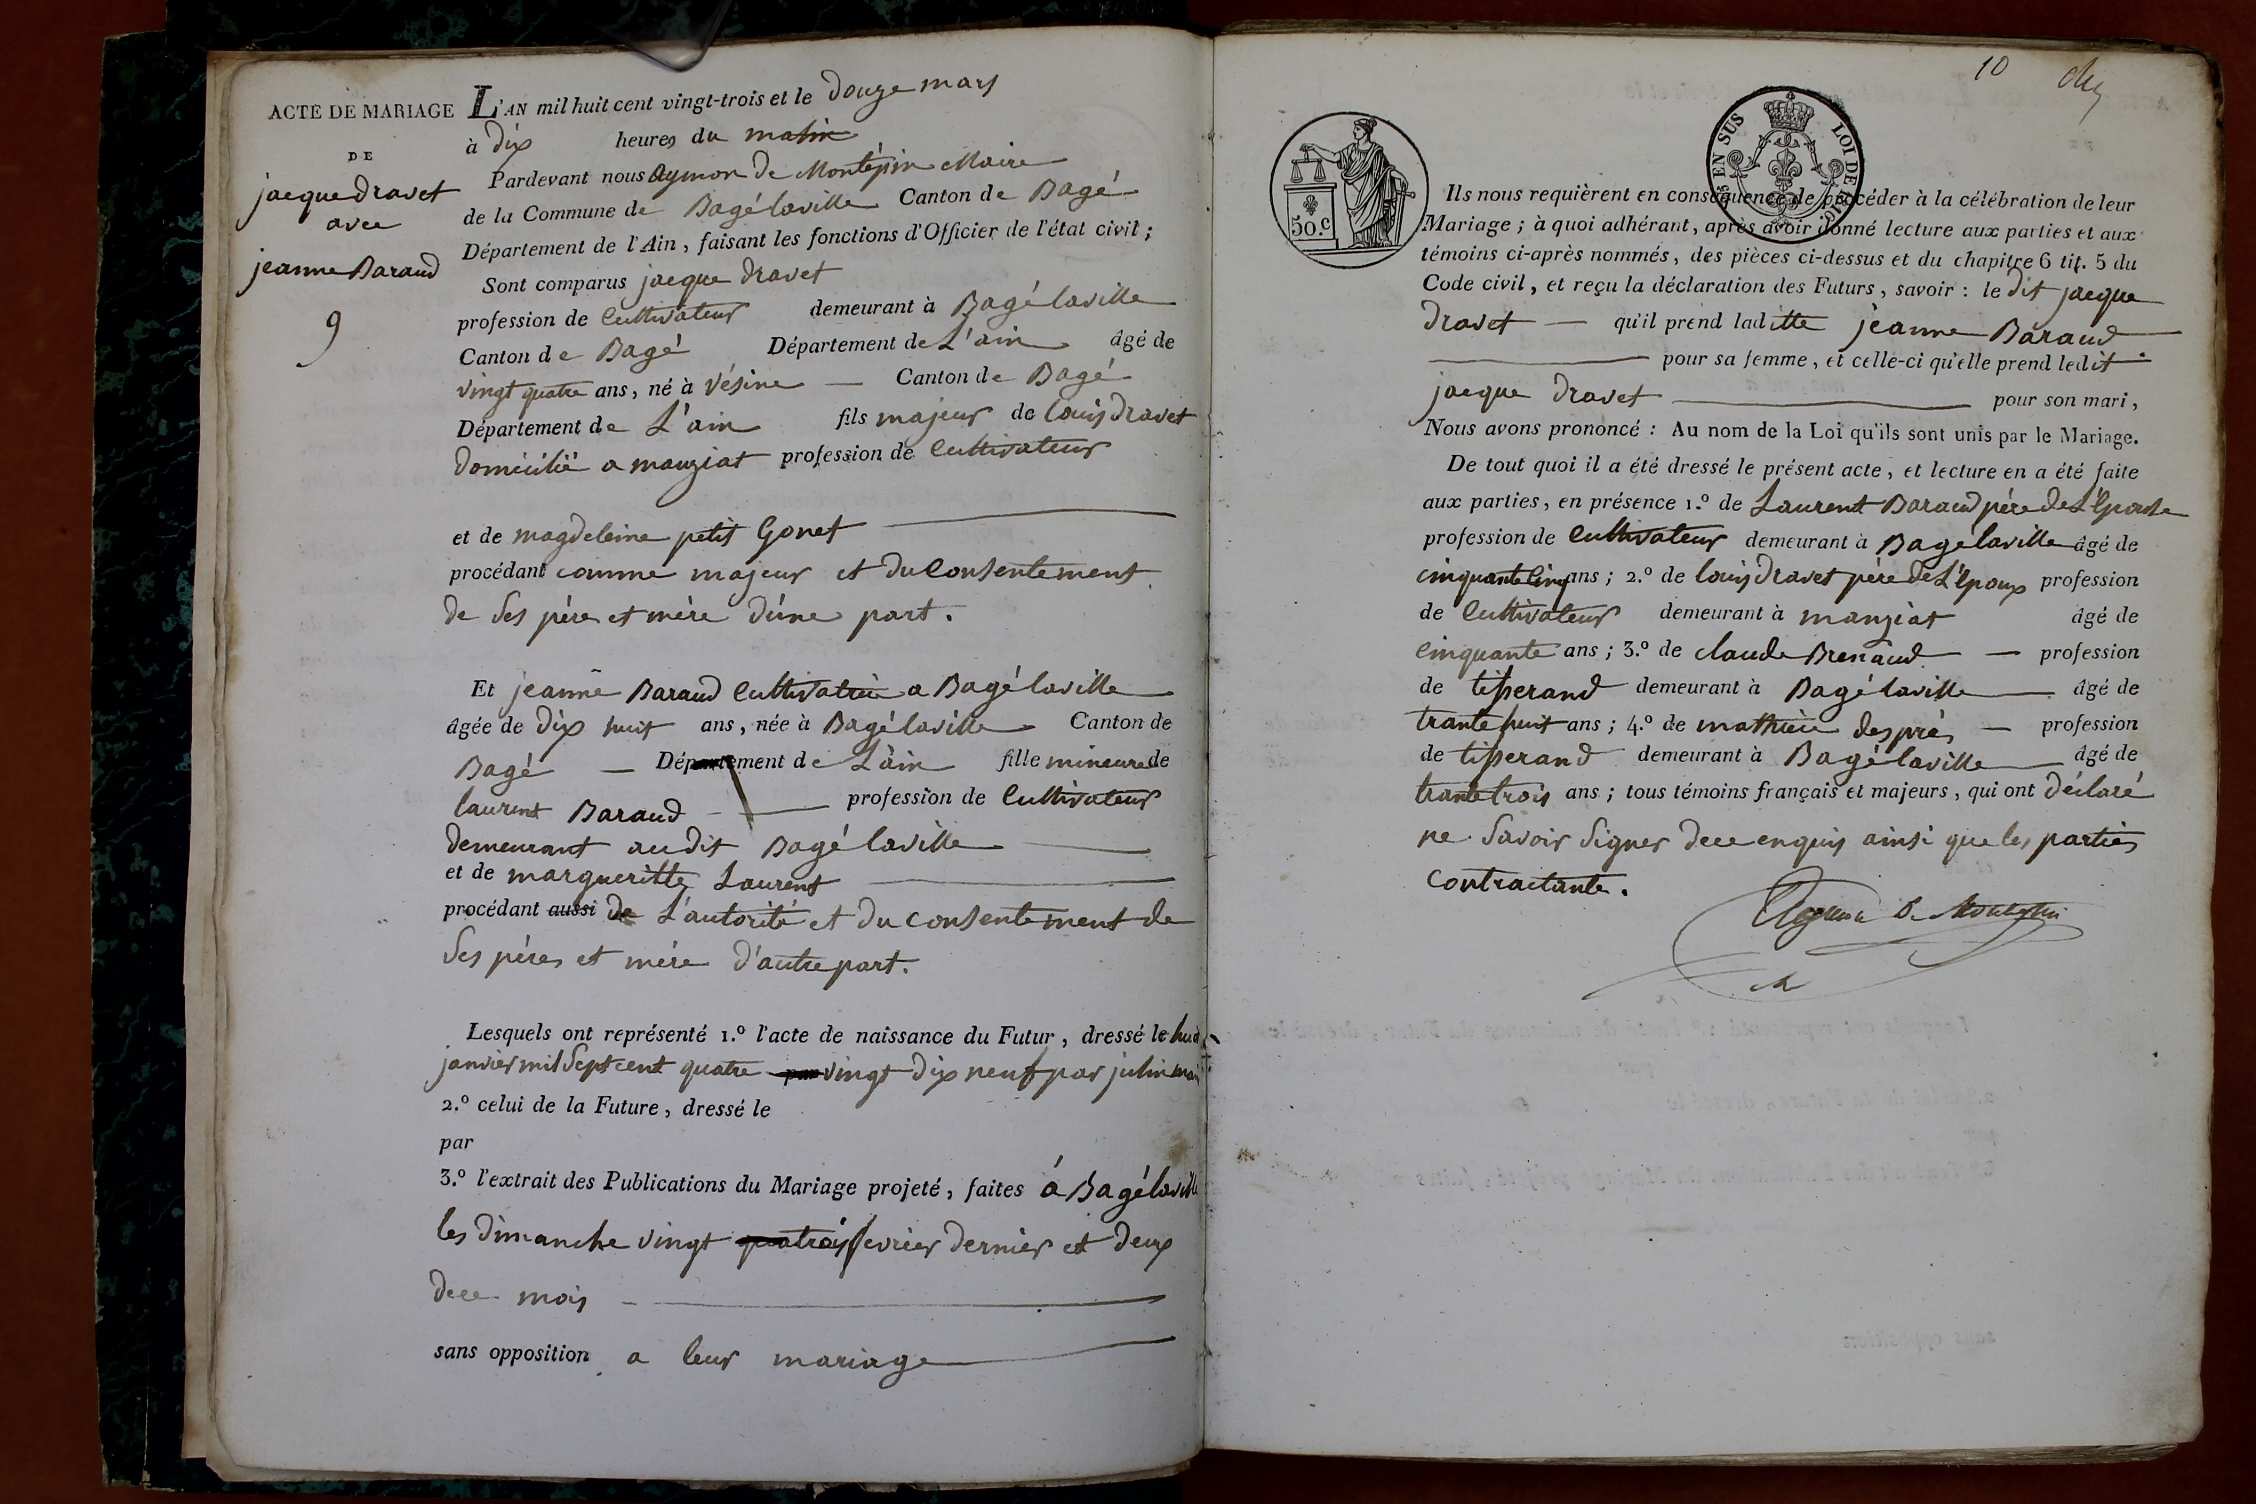 ACTE DE MARIAGE
DE
jacque dravet
avec
jeanne Baraud
9
L'AN mil huit cent vingt-trois et le douze mars
à dix heures du matin
Pardevant nous Aymon de Montépin Maire
de la Commune de Bagé laville Canton de Bagé
Département de l'Ain, faisant les fonctions d'Officier de l'état civil;
Sont comparus jacque dravet
profession de Cultivateur demeurant à Bagé laville
Canton de Bagé Département de L'ain âgé de
vingt quatre ans, né à vésine — Canton de Bagé
Département de L'ain fils majeur de louis dravet
domicilié a manziat profession de Cultivateur
et de magdeleine petit Gonet
procédant comme majeur et du Consentement
de Ses père et mère d'une part.
Et jeanne Baraud Cultivatrice a Bagé laville
âgée de dix huit ans, née à Bagé laville Canton de
Bagé — Département de L'ain fille mineure de
laurent Baraud — profession de Cultivateur
demeurant audit Bagé laville
et de margueritte Laurent
procédant aussi de L'autorité et du consentement de
Ses pères et mère d'autre part.
Lesquels ont représenté 1.º l'acte de naissance du Futur, dressé le huit
janvier mil Sept cent quatre vingt dix neuf par julin
2.º celui de la Future, dressé le
par
3.º l'extrait des Publications du Mariage projeté, faites á Bagé laville
les dimanche vingt trois fevrier dernier et deux
dece mois
sans opposition a leur mariage
10
EN SUS LOI DE
50.C
Ils nous requièrent en conséquence de procéder à la célébration de leur
Mariage; à quoi adhérant, après avoir donné lecture aux parties et aux
témoins ci-après nommés, des pièces ci-dessus et du chapitre 6 tit. 5 du
Code civil, et reçu la déclaration des Futurs, savoir: le dit jacque
dravet — qu'il prend laditte jeanne Baraud
pour sa femme, et celle-ci qu'elle prend ledit
jacque dravet pour son mari,
Nous avons prononcé: Au nom de la Loi qu'ils sont unis par le Mariage.
De tout quoi il a été dressé le présent acte, et lecture en a été faite
aux parties, en présence 1.º de Laurent Baraud père de L'Epouse
profession de Cultivateur demeurant à Bagé laville âgé de
cinquante Cinq ans; 2.º de louis dravet père de L'Epoux profession
de Cultivateur demeurant à manziat âgé de
Cinquante ans; 3.º de claude Brenaud — profession
de tisserand demeurant à Bagé laville âgé de
trante huit ans; 4.º de mathieu desprès — profession
de tisserand demeurant à Bagé laville âgé de
trante trois ans; tous témoins français et majeurs, qui ont déclaré
ne Savoir Signer dece enquis ainsi que les parties
contractante.
Aymon De Montépin